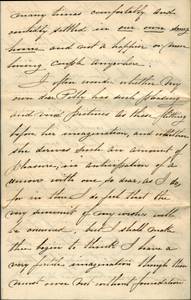 many times comfortably and
settled in our own dear
home and not a happier or more
loving couple anywhere.
I often wonder whether my
own dear Polly has such pleasing
and real pictures as these flitting
before her imagination, and whether
she derives such an amount of
pleasure, in anticipation of a
union with one so dear, as I do,
for in time I do feel that the
very summit of my wishes will
be
then begin to think I have a
very fertile imagination though this
must not without foundation